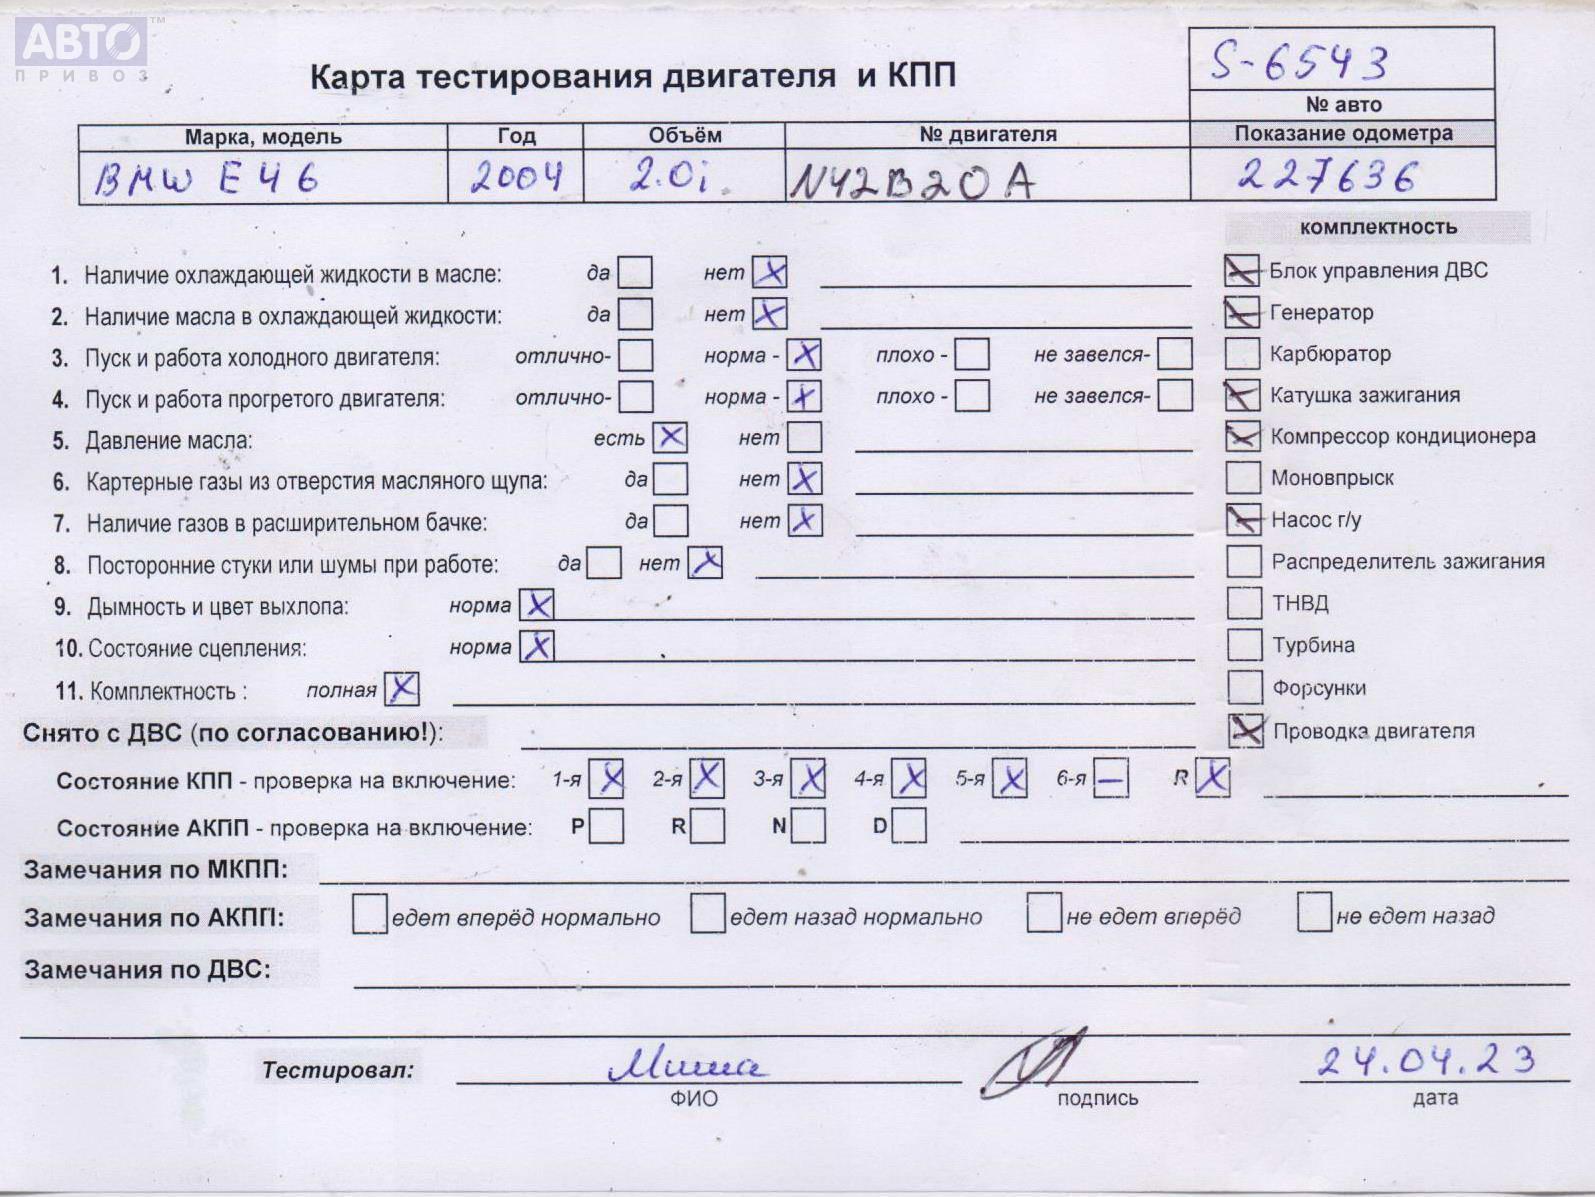 АВТО ™
ПРИВОЗ
S-6543
Карта тестирования двигателя и КПП
№ авто
Марка, модель Год Объём № двигателя Показание одометра
BMW E46 2004 2.0i. N42B20A 227636
комплектность
1. Наличие охлаждающей жидкости в масле: да нет X Блок управления ДВС
2. Наличие масла в охлаждающей жидкости: да нет X Генератор
3. Пуск и работа холодного двигателя: отлично- норма - X плохо - не завелся- Карбюратор
4. Пуск и работа прогретого двигателя: отлично- норма - X плохо - не завелся- Катушка зажигания
5. Давление масла: есть X нет Компрессор кондиционера
6. Картерные газы из отверстия масляного щупа: да нет X Моновпрыск
7. Наличие газов в расширительном бачке: да нет X Насос г/у
8. Посторонние стуки или шумы при работе: да нет X Распределитель зажигания
9. Дымность и цвет выхлопа: норма X ТНВД
10. Состояние сцепления: норма X Турбина
11. Комплектность : полная X Форсунки
Снято с ДВС (по согласованию!): Проводка двигателя
Состояние КПП - проверка на включение: 1-я X 2-я X 3-я X 4-я X 5-я X 6-я — R X
Состояние АКПП - проверка на включение: P R N D
Замечания по МКПП:
Замечания по АКПП: едет вперёд нормально едет назад нормально не едет вперёд не едет назад
Замечания по ДВС:
Тестировал: Миша 24.04.23
ФИО подпись дата